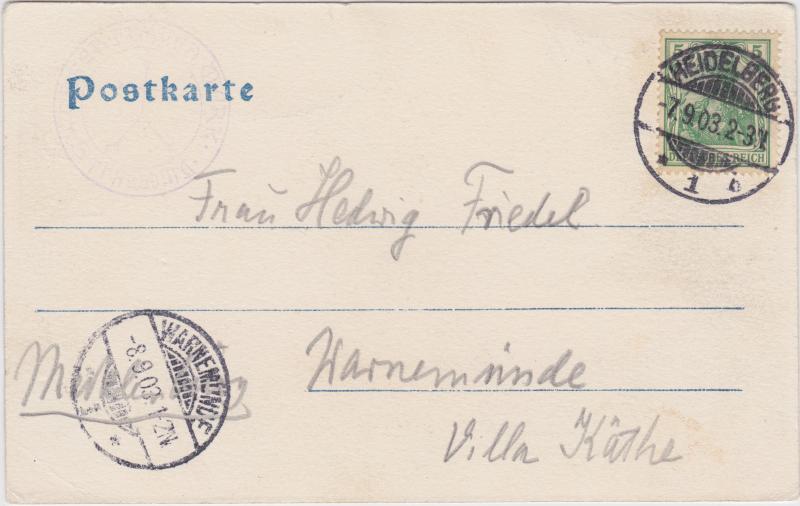 Postkarte
5 5
DEUTSCHES REICH
HEIDELBERG
-7.9.03. 2-3N
* 1 b
Frau Hedwig Friedel
Warnemünde
Villa Käthe
Mecklenburg
WARNEMÜNDE
-8.9.03. 1-2N
* 1 *